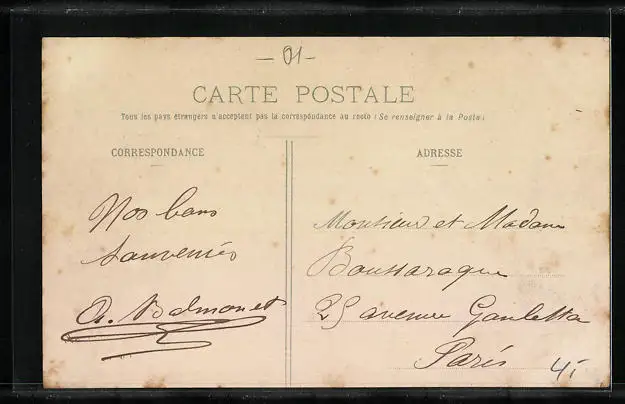 - 01 -
CARTE POSTALE
Tous les pays étrangers n'acceptent pas la correspondance au recto (Se renseigner à la Poste)
CORRESPONDANCE
ADRESSE
Nos bons
Souvenirs
Monsieur et Madame
25 avenue Gambetta
Paris